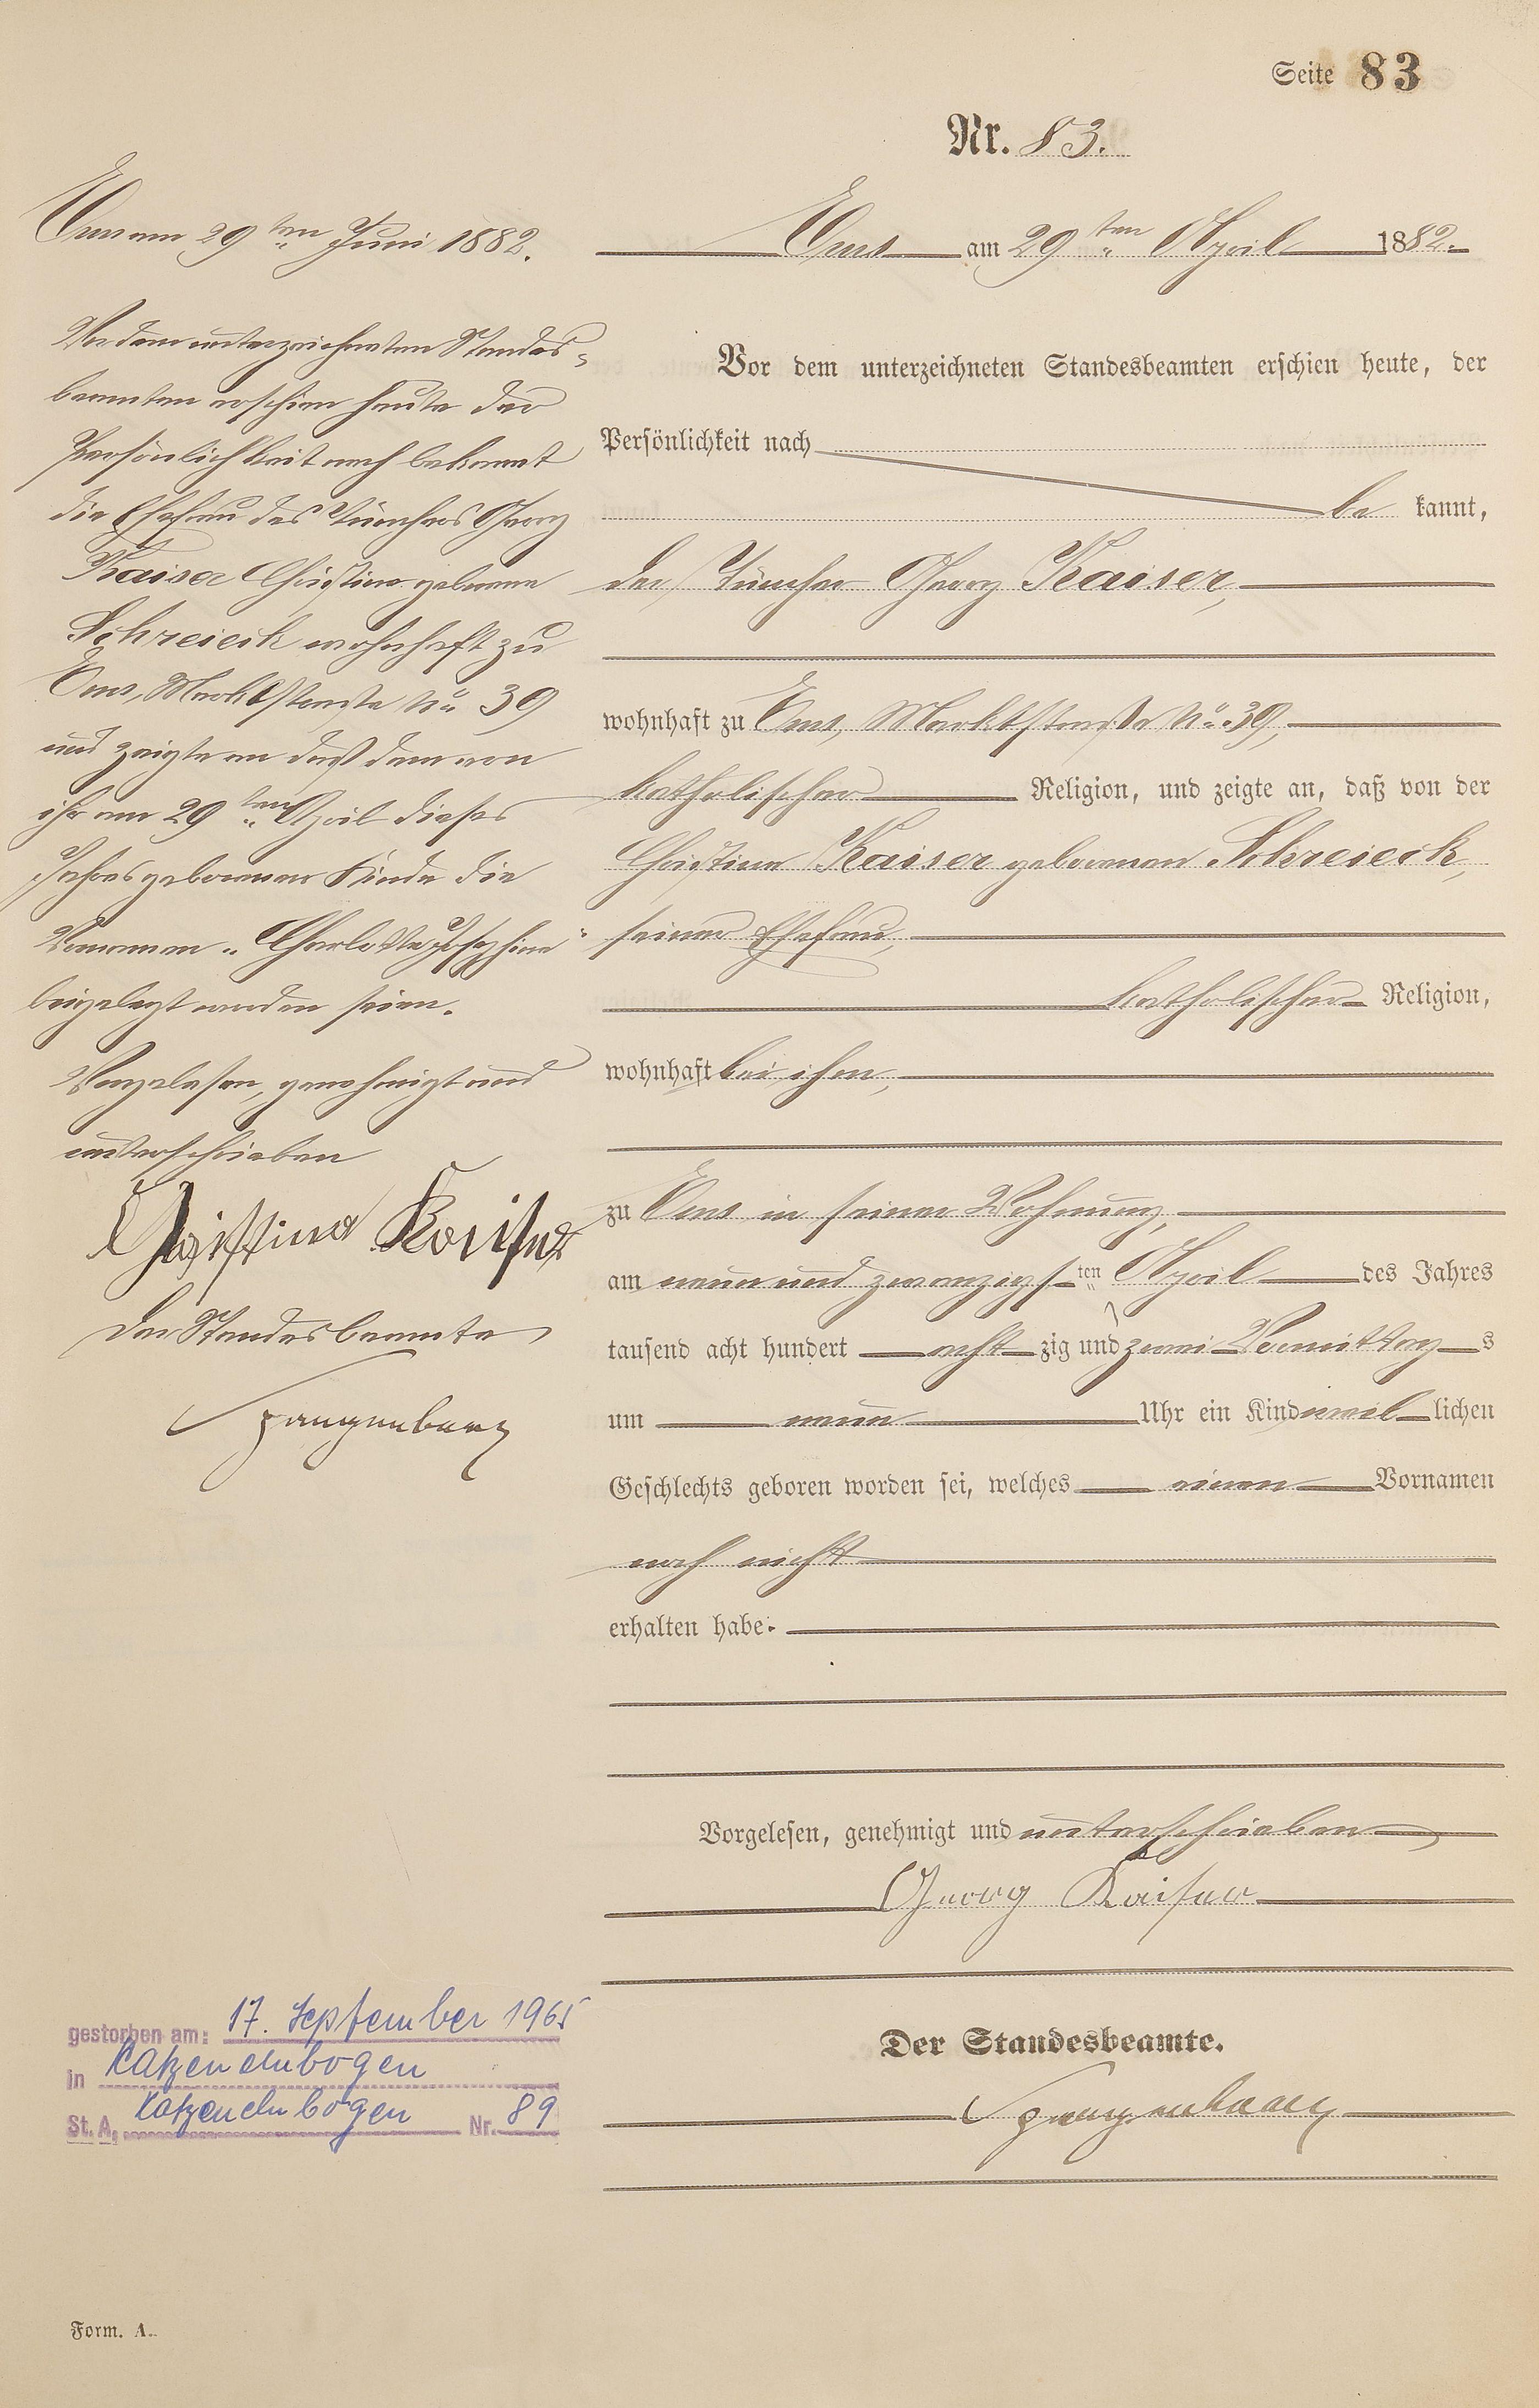 Seite 83
Nr. 83.
Ems am 29ten April 1882.
Vor dem unterzeichneten Standesbeamten erschien heute, der
Persönlichkeit nach
be kannt,
der Tüncher Georg Kaiser,
wohnhaft zu Ems, Marktstraße No 39,
katholischer Religion, und zeigte an, daß von der
Christine Kaiser geborenen Schreieck,
seiner Ehefrau,
katholischer Religion,
wohnhaft bei ihm,
zu Ems in seiner Wohnung,
am neun und zwanzigsten April des Jahres
tausend acht hundert acht zig und zwei Vormittags
um neun Uhr ein Kind weiblichen
Geschlechts geboren worden sei, welches einen Vornamen
noch nicht
erhalten habe.
Vorgelesen, genehmigt und unterschrieben
Georg Kaiser
Der Standesbeamte.
Spangenberg
Ems am 29ten Juni 1882.
Vor dem unterzeichneten Standes-
beamten erschien heute der
Persönlichkeit nach bekannt
die Ehefrau des Tünchers Georg
Kaiser Christine geborene
Schreieck wohnhaft zu
Ems, Marktstraße No 39
und zeigte an daß dem von
ihr am 29ten April dieses
Jahres geborenen Kinde die
Vornamen „Charlotte Josephine“
beigelegt worden seien.
Vorgelesen, genehmigt und
unterschrieben
Christina Kaiser
Der Standesbeamte
Spangenberg
gestorben am: 17. September 1965
in Katzenelnbogen
St. A. Katzenelnbogen Nr. 89
Form. A.